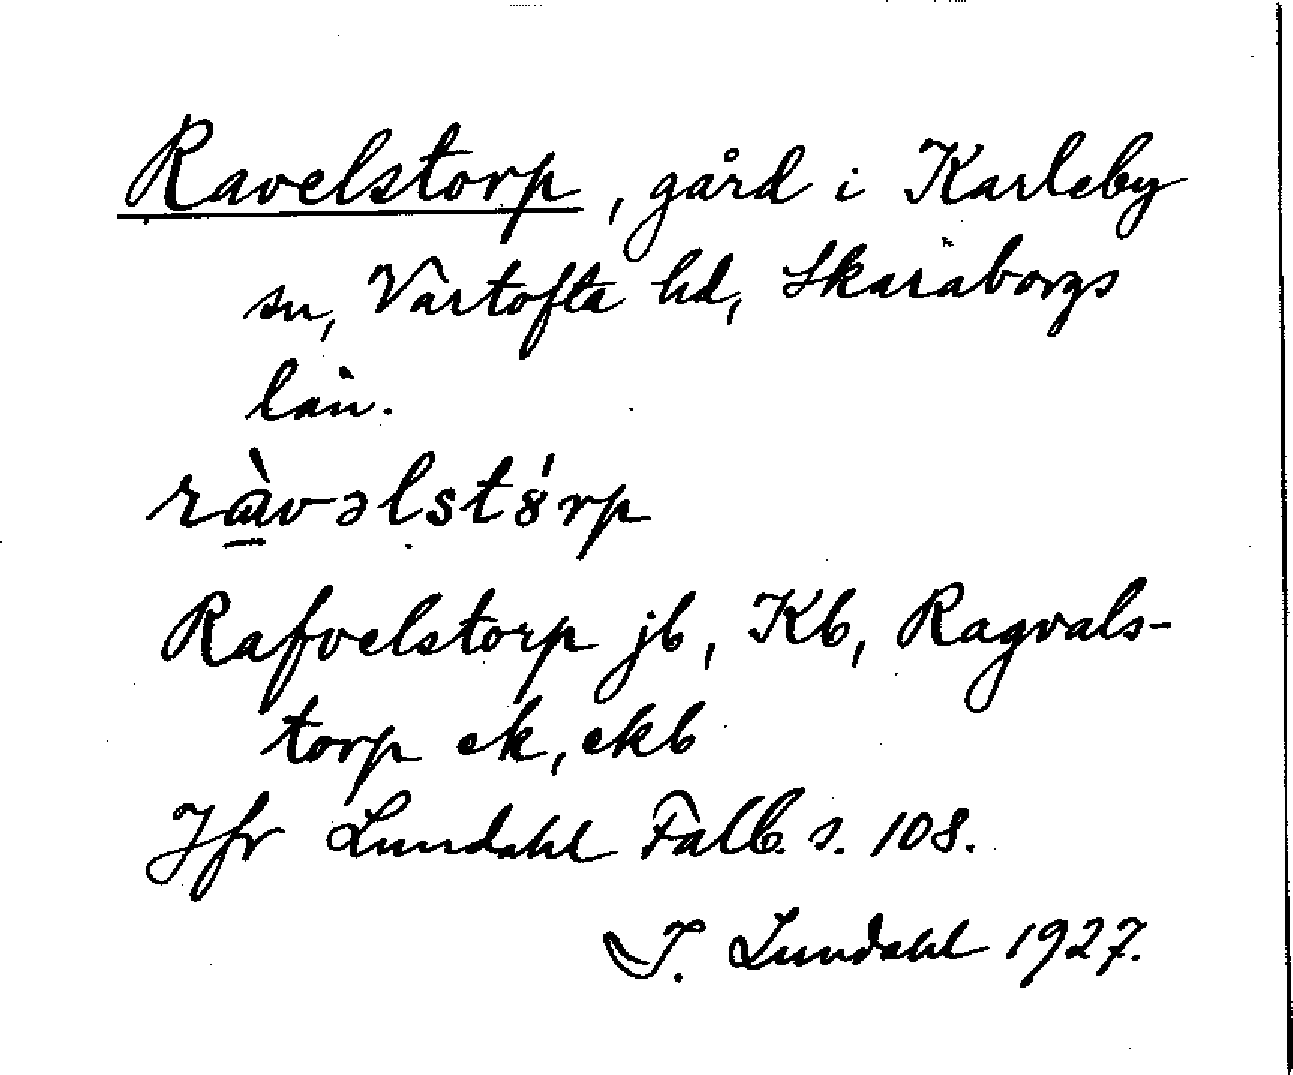 Ravelstorp, gård i Karleby
sn, Vartofta hd, Skaraborgs
län.
ràvəlstȣ́rp
Rafvelstorp jb, Kb, Ragvals-
torp ek, ekb
Jfr Lundahl Falb. s. 108.
I. Lundahl 1927.